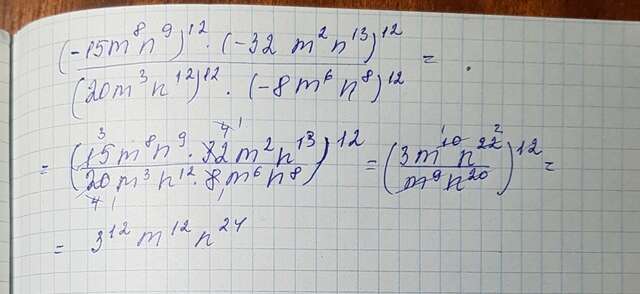 (-15m⁸n⁹)¹² · (-32 m²n¹³)¹² / (20m³n¹²)¹² · (-8m⁶n⁸)¹² = .
= (15m⁸n⁹ · 32m²n¹³ / 20m³n¹² · 8m⁶n⁸)¹² = (3m¹⁰n²² / m⁹n²⁰)¹² =
= 3¹² m¹² n²⁴